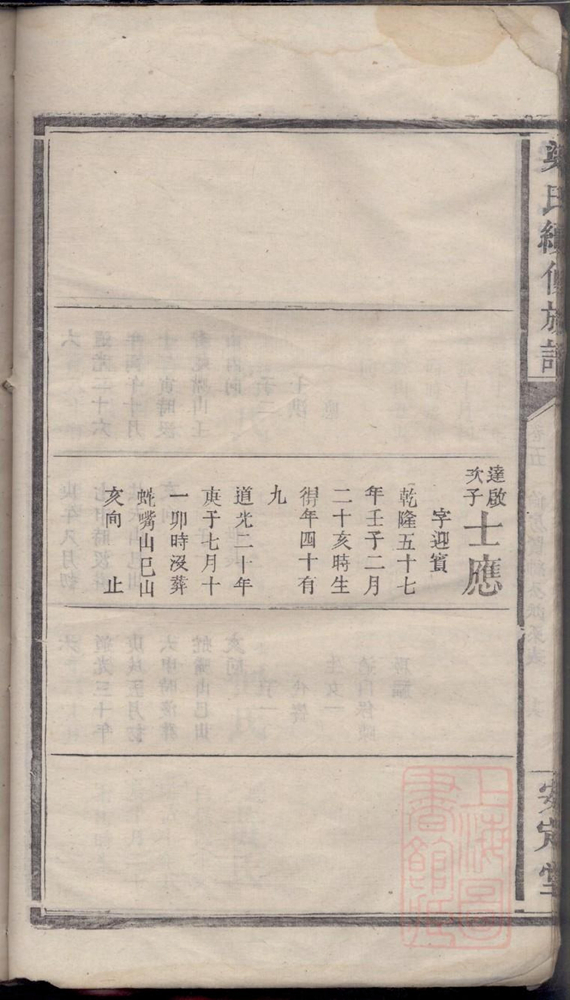 氏續修族譜
達啟
次子
士應
字迎賓
乾隆五十七
年壬子二月
二十亥時生
得年四十有
九
道光二十年
庚子七月十
一卯時沒葬
嘴山巳山
亥向　止
安定堂
上海圖
書館藏